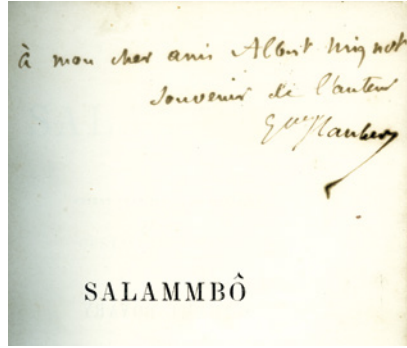 à mon cher ami Albert Mignot
souvenir de l'auteur
Gve Flaubert
SALAMMBÔ